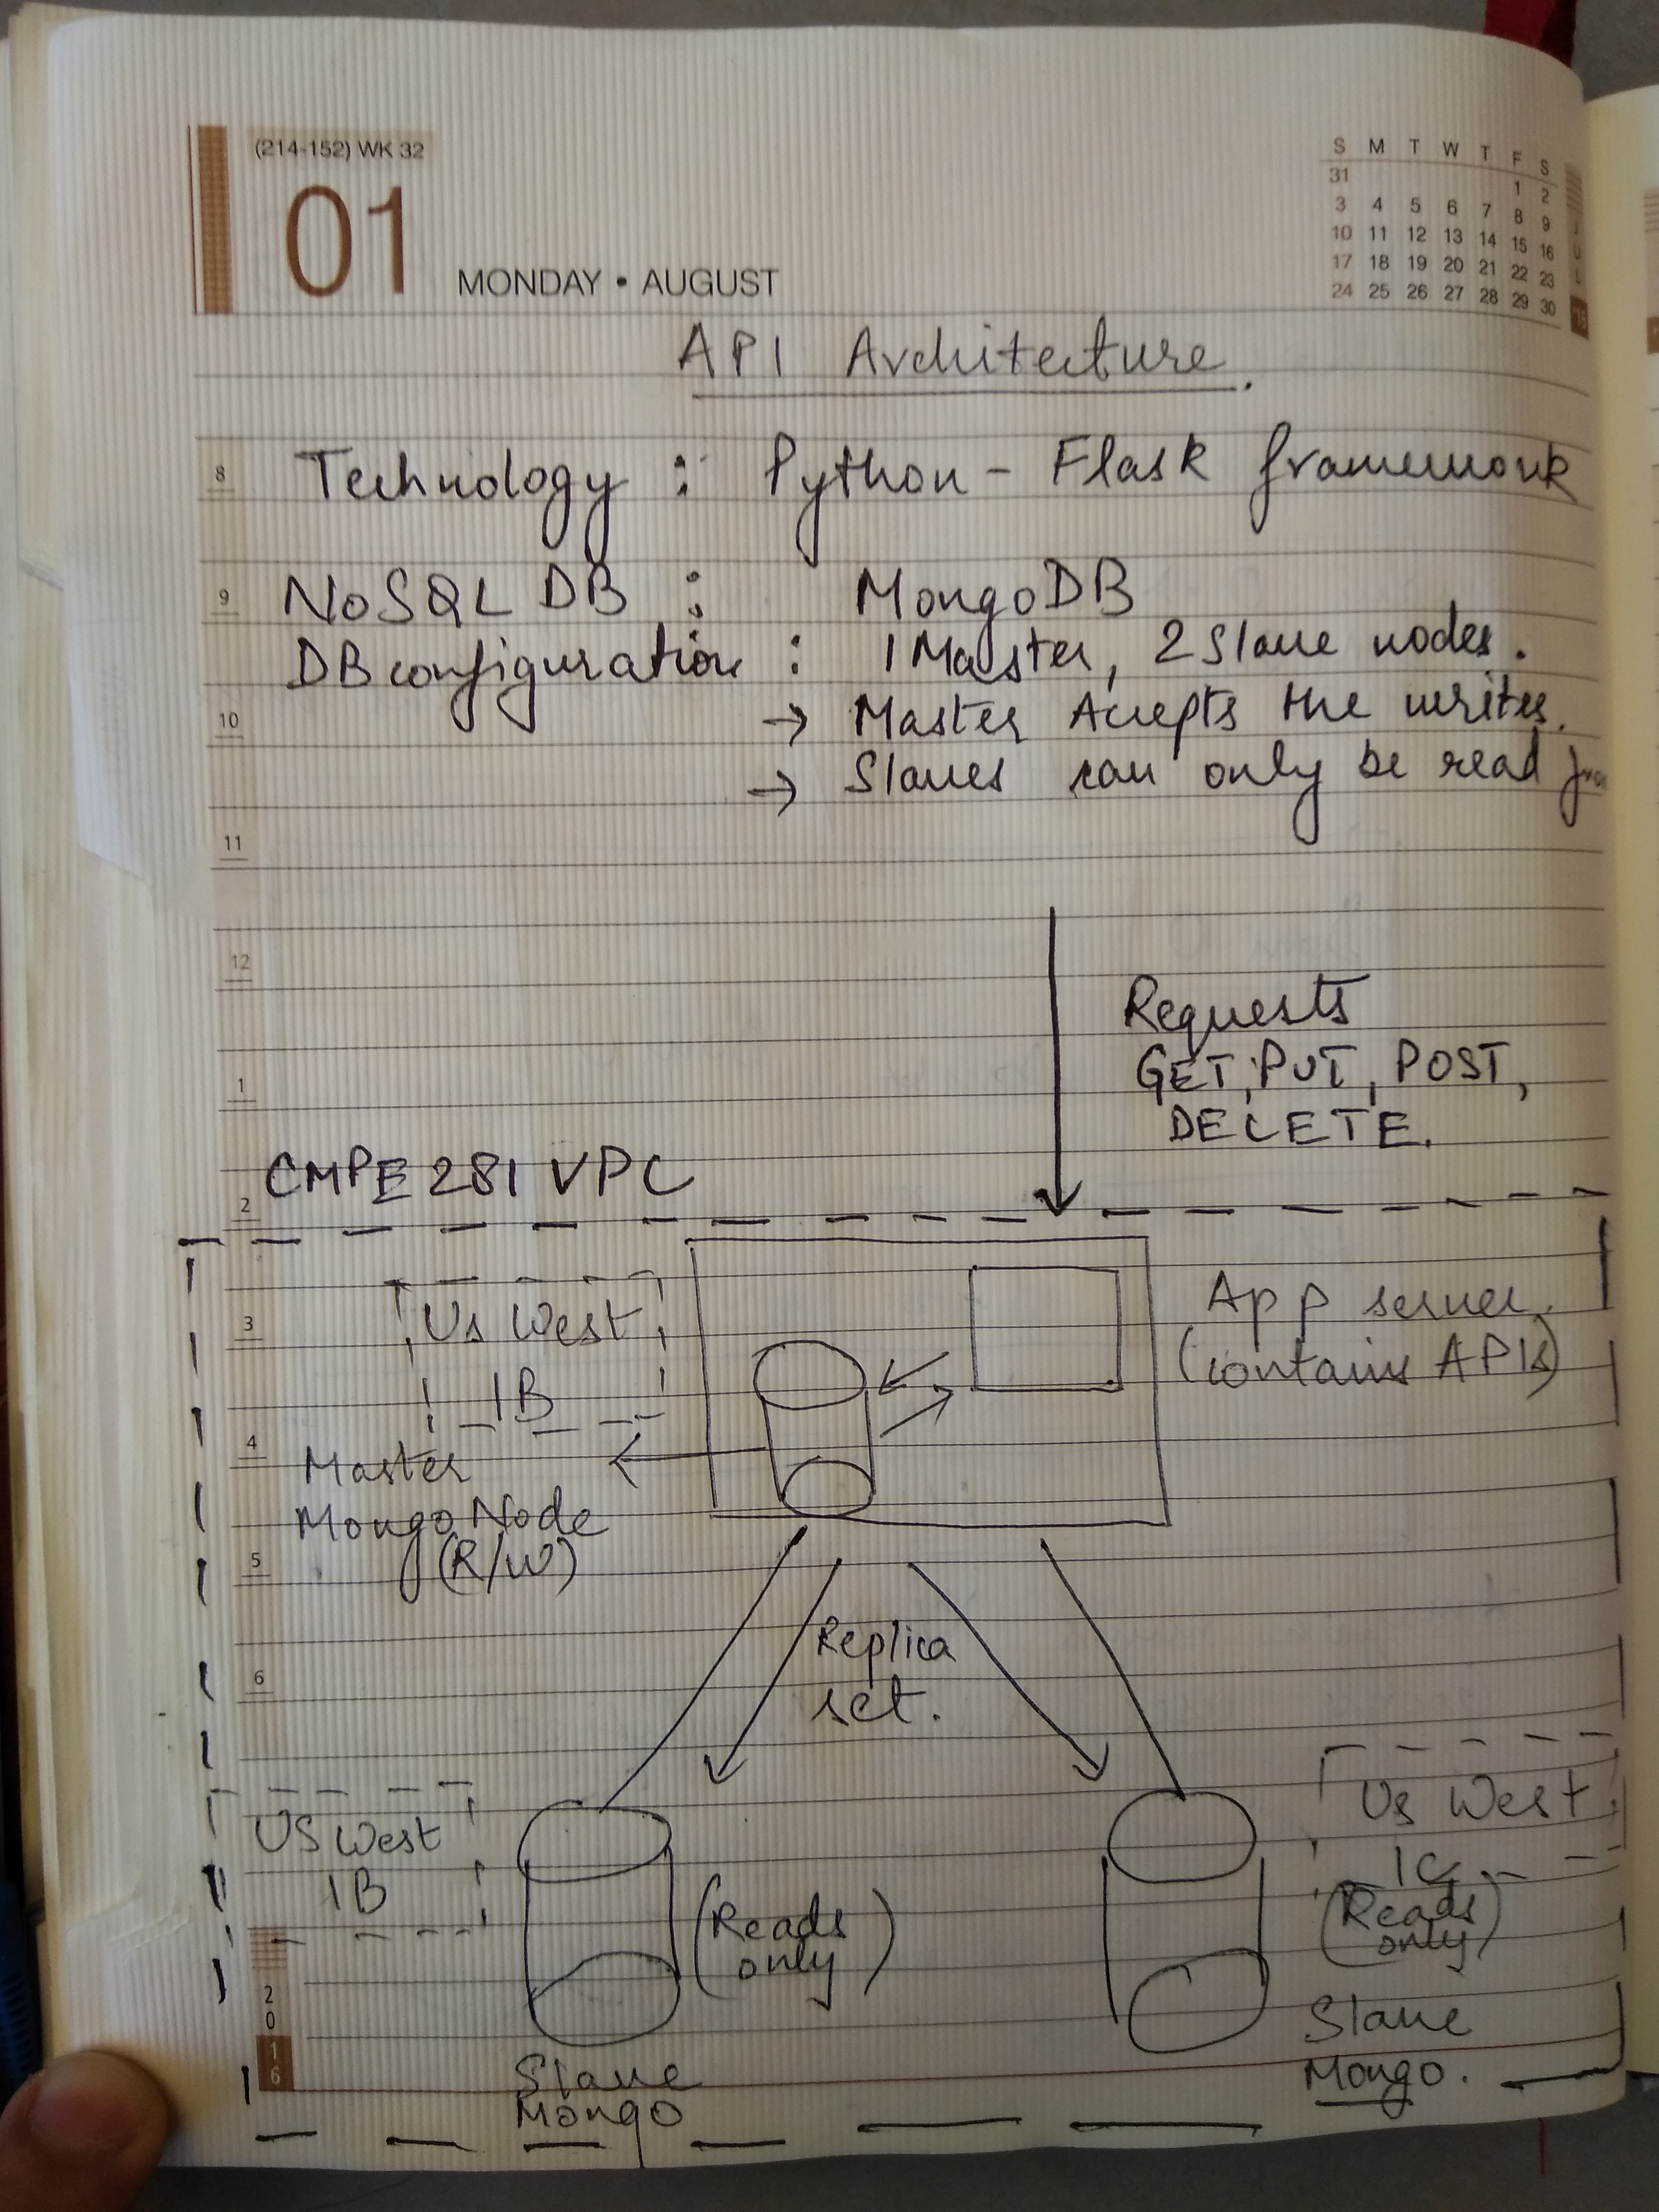 (214-152) WK 32
01
MONDAY • AUGUST
S M T W T F S
31 1 2
3 4 5 6 7 8 9
10 11 12 13 14 15 16
17 18 19 20 21 22 23
24 25 26 27 28 29 30
JUL
API Architecture.
8 Technology : Python - Flask framework
9 NoSQL DB : MongoDB
DB configuration : 1 Master, 2 Slave nodes.
10 → Master Accepts the writes.
→ Slaves can only be read from
11
12
Requests
1 GET, PUT, POST,
DELETE.
2 CMPE 281 VPC
3 Us West
1B
App server
(contains APIs)
4 Master
Mongo Node
5 (R/W)
Replica
6 set.
US West
1B
(Reads
only)
Us West
1C
(Reads
only)
2016
Slave
Mongo
Slave
Mongo.